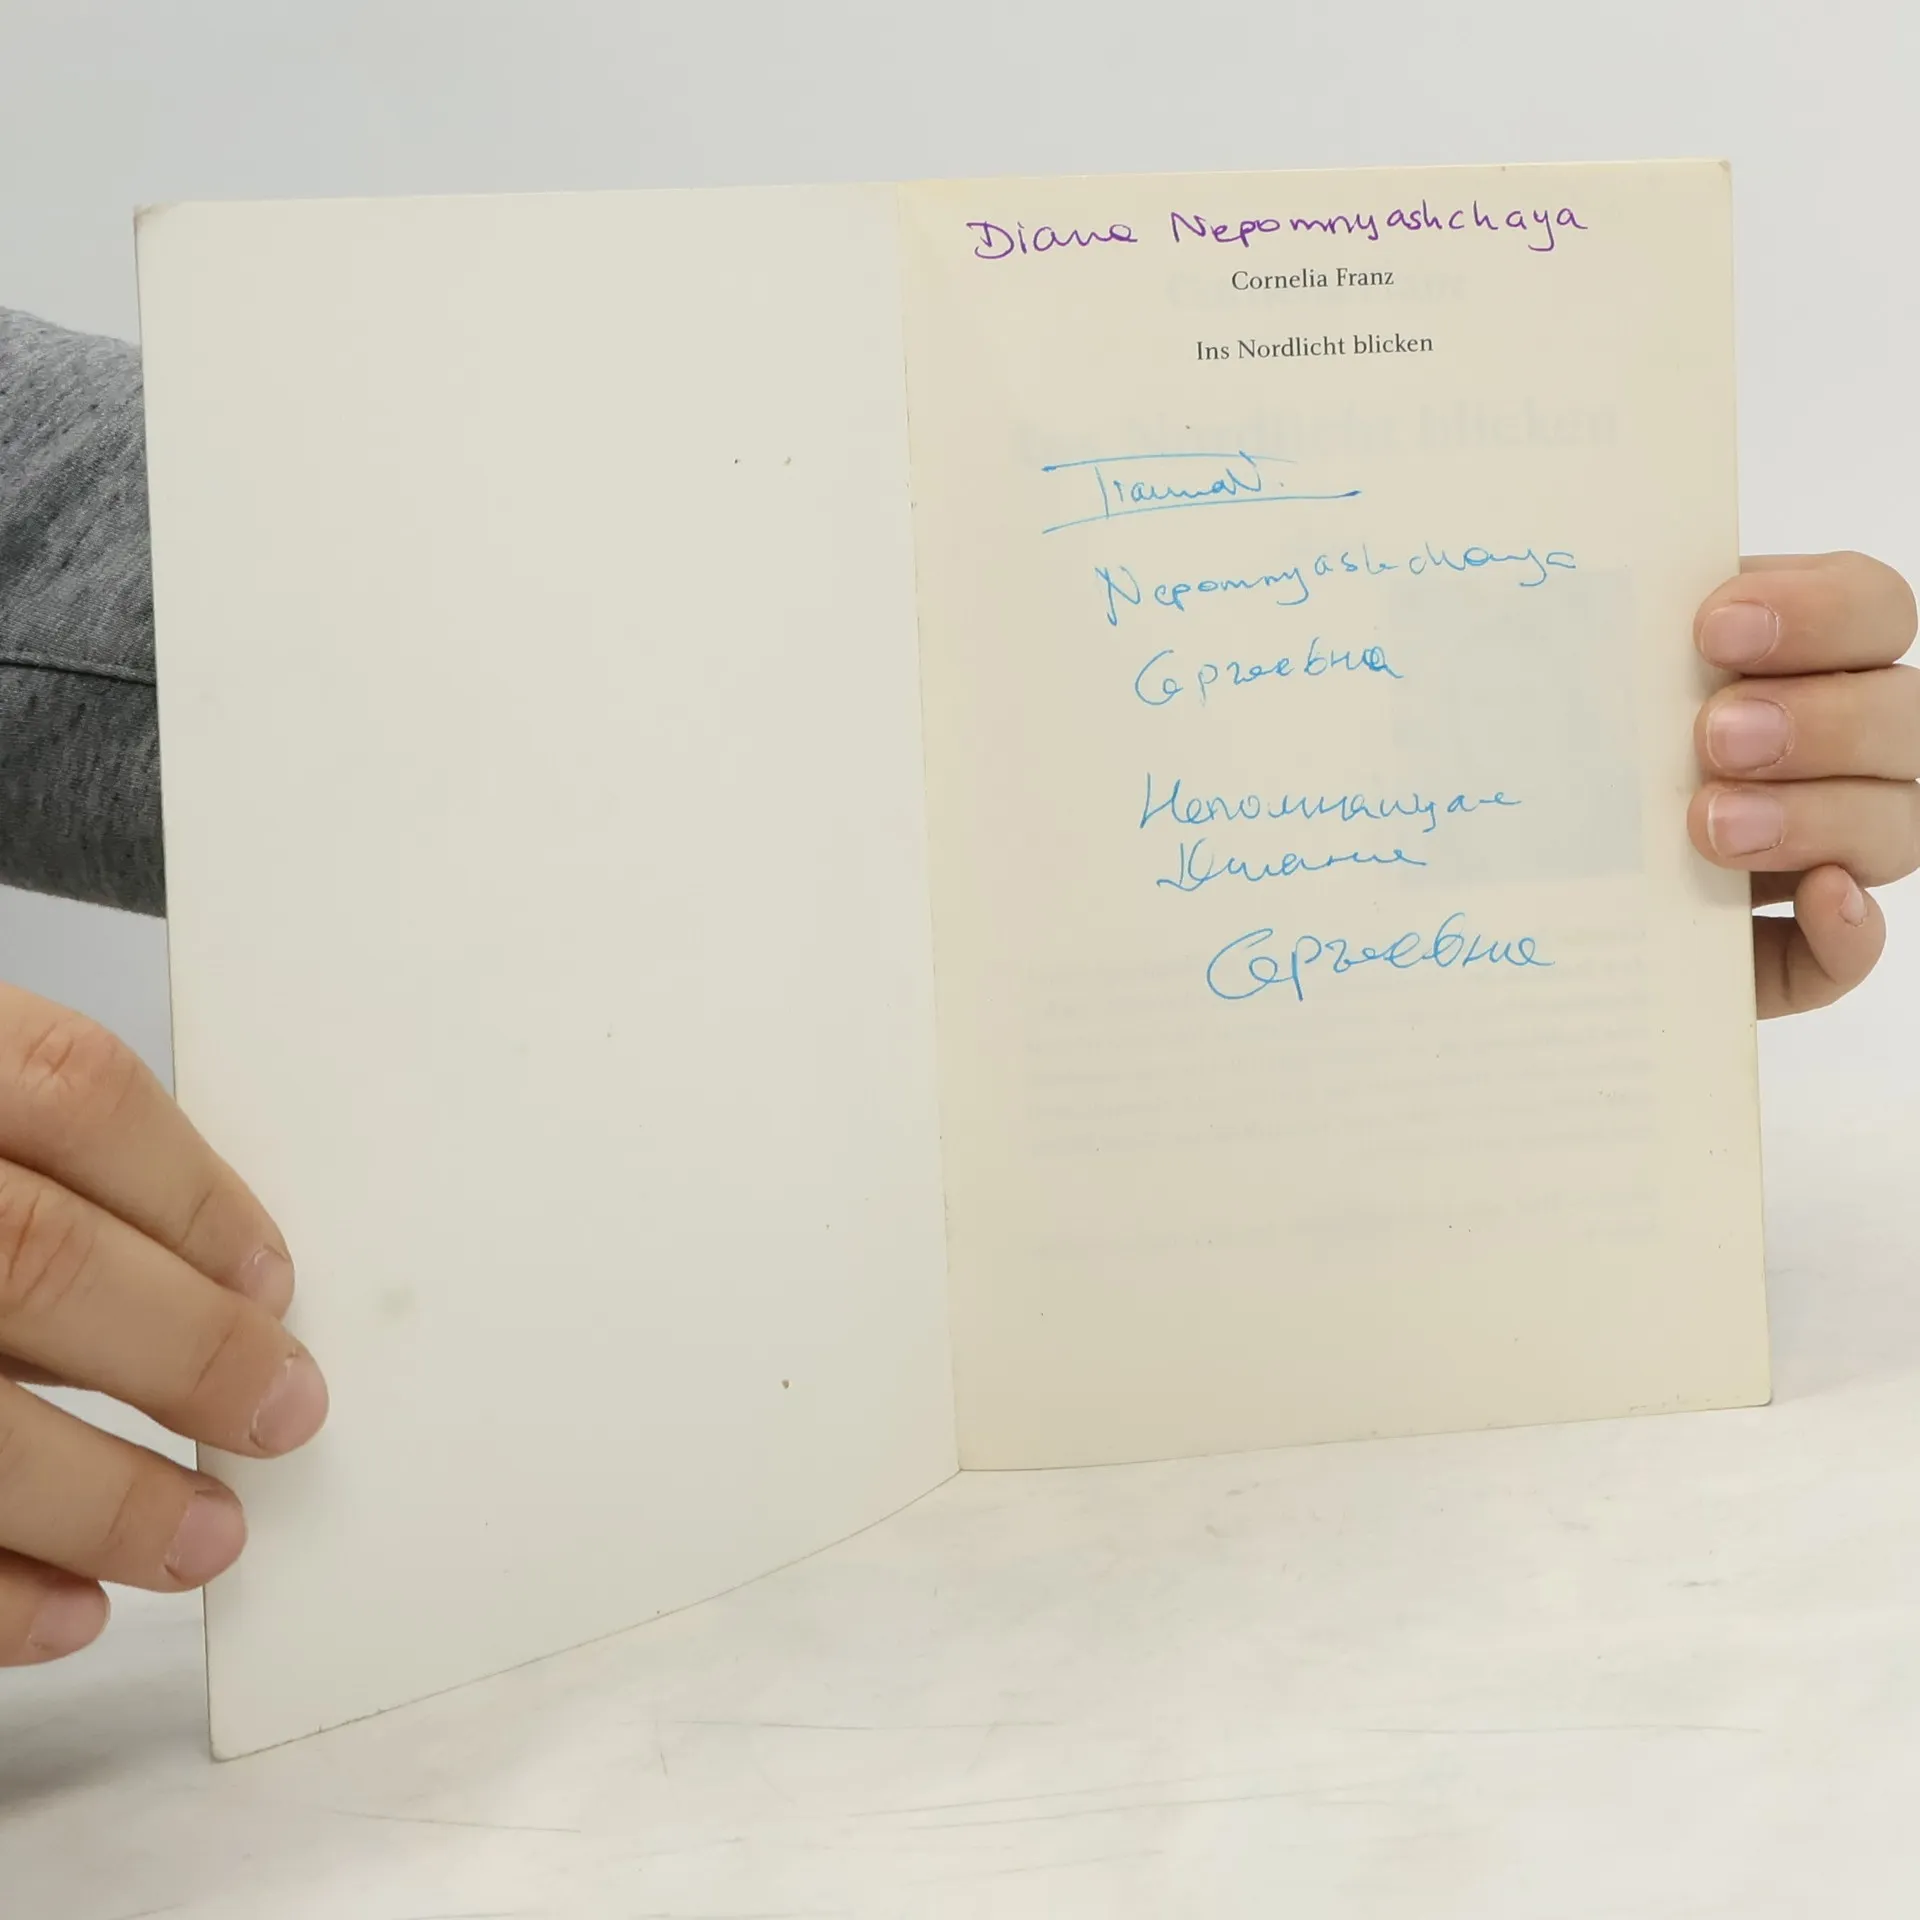 Diana Nepomnyashchaya
Cornelia Franz
Ins Nordlicht blicken
Nepomnyashchaya
Сергеевна
Непомнящая
Диана
Сергеевна